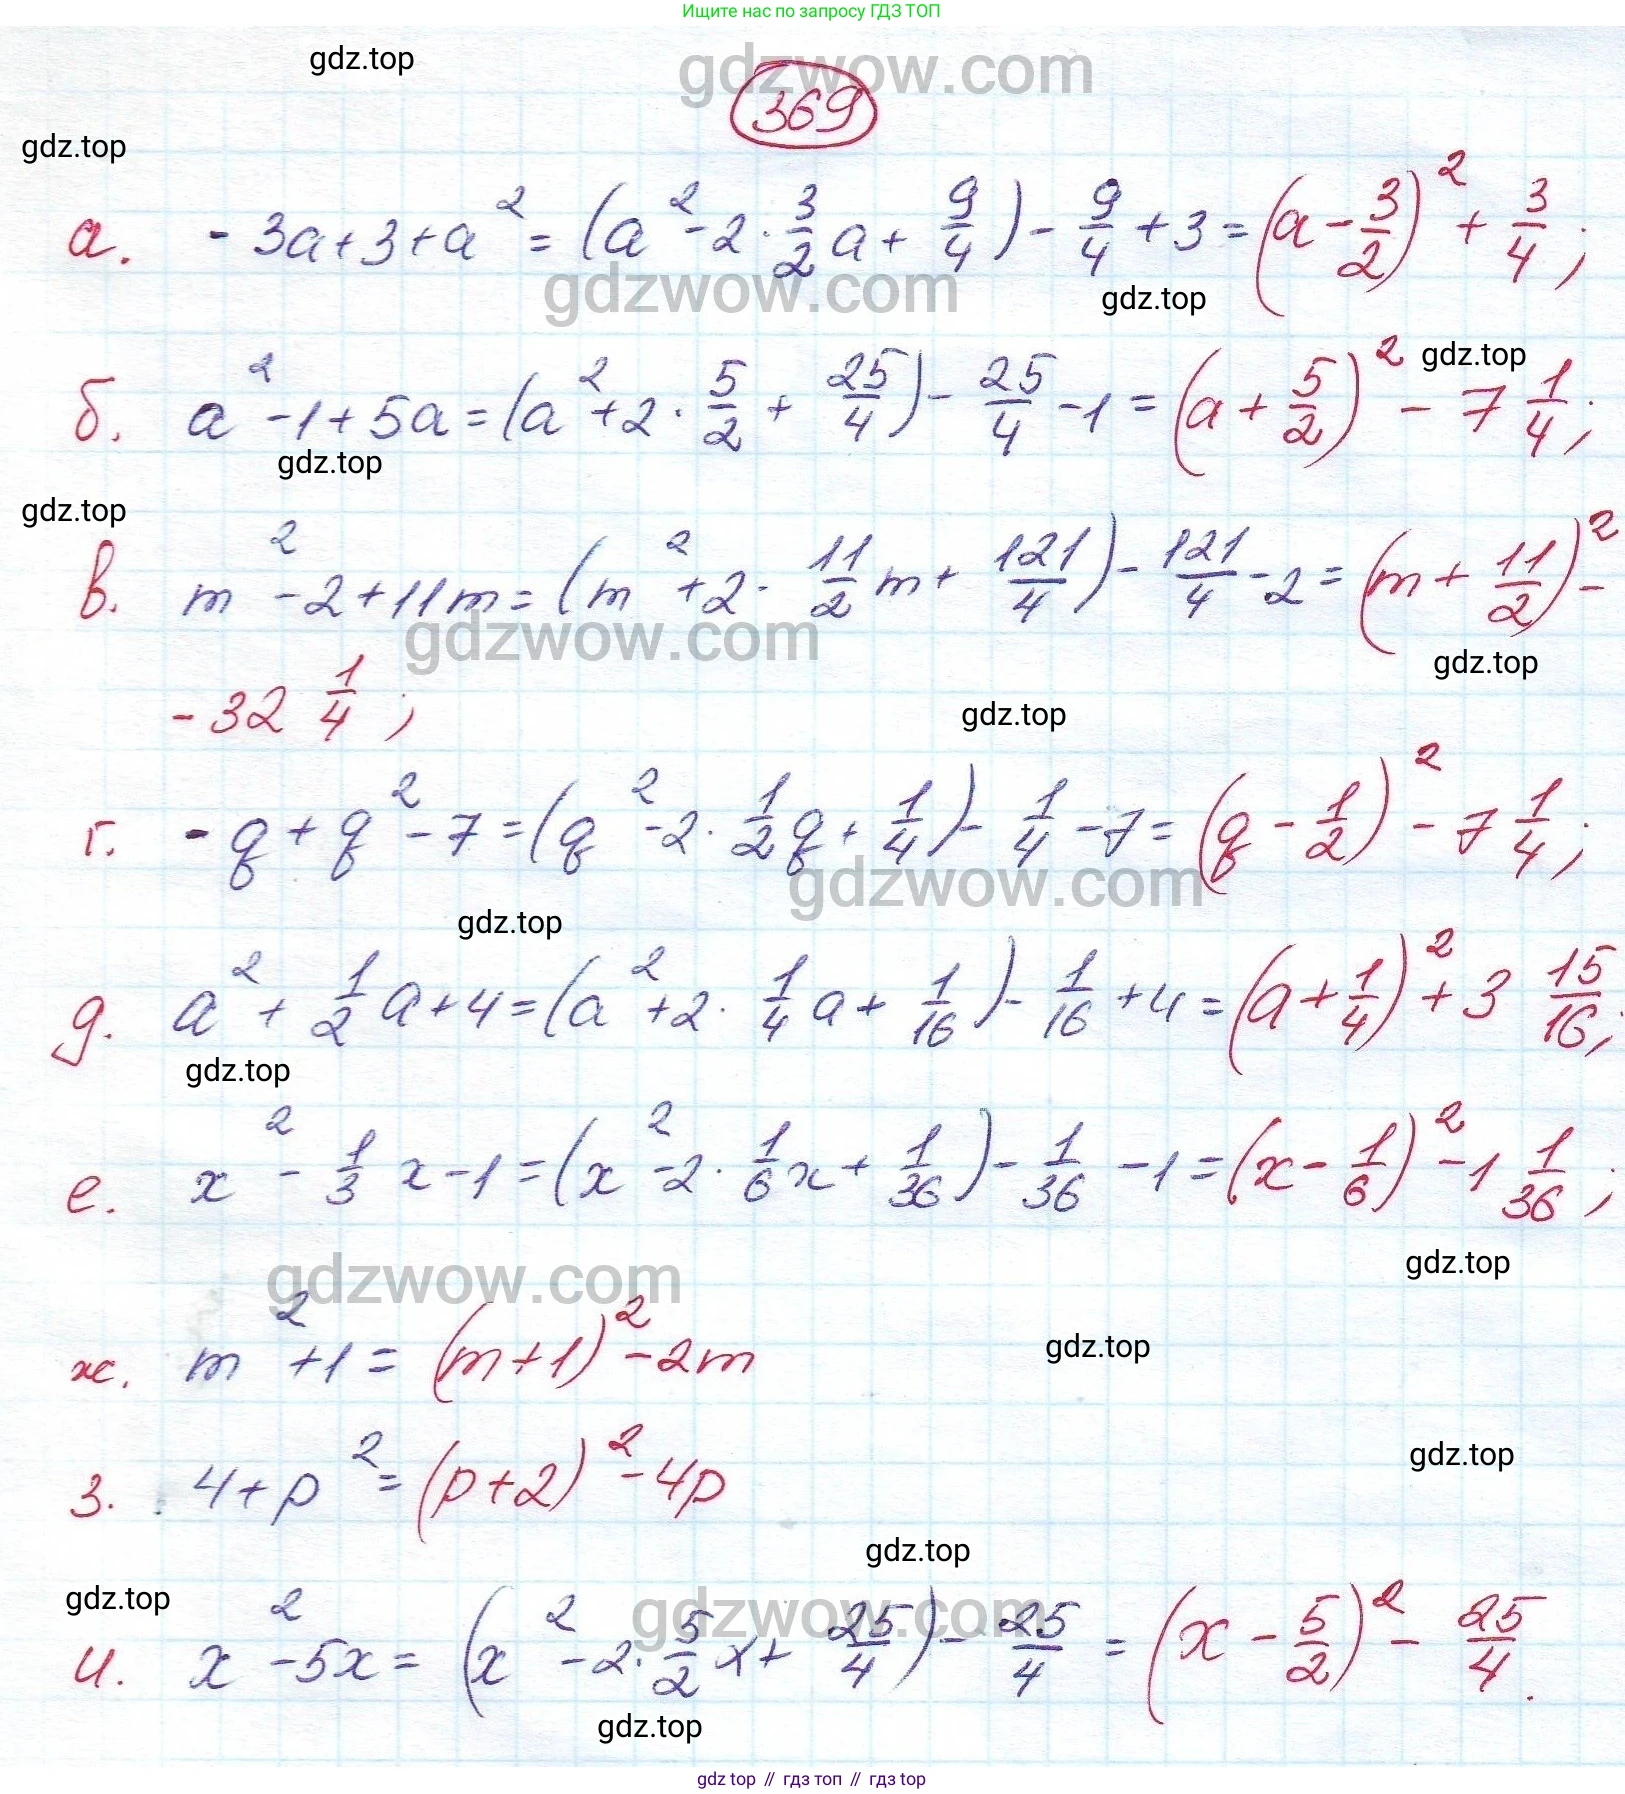 Ищите нас по запросу ГДЗ ТОП
gdz.top
gdzwow.com
369
gdz.top
а. - 3a + 3 + a² = (a² - 2 · 3/2 a + 9/4) - 9/4 + 3 = (a - 3/2)² + 3/4;
gdzwow.com
gdz.top
gdz.top
б. a² - 1 + 5a = (a² + 2 · 5/2 + 25/4) - 25/4 - 1 = (a + 5/2)² - 7 1/4;
gdz.top
gdz.top
в. m² - 2 + 11m = (m² + 2 · 11/2 m + 121/4) - 121/4 - 2 = (m + 11/2)² -
gdzwow.com
gdz.top
- 32 1/4;
gdz.top
г. - q + q² - 7 = (q² - 2 · 1/2 q + 1/4) - 1/4 - 7 = (q - 1/2)² - 7 1/4;
gdzwow.com
gdz.top
д. a² + 1/2 a + 4 = (a² + 2 · 1/4 a + 1/16) - 1/16 + 4 = (a + 1/4)² + 3 15/16;
gdz.top
е. x² - 1/3 x - 1 = (x² - 2 · 1/6 x + 1/36) - 1/36 - 1 = (x - 1/6)² - 1 1/36;
gdz.top
gdzwow.com
ж. m² + 1 = (m + 1)² - 2m
gdz.top
з. 4 + p² = (p + 2)² - 4p
gdz.top
gdz.top
gdz.top
gdzwow.com
и. x² - 5x = (x² - 2 · 5/2 x + 25/4) - 25/4 = (x - 5/2)² - 25/4.
gdz.top
gdz top // гдз топ // gdz top